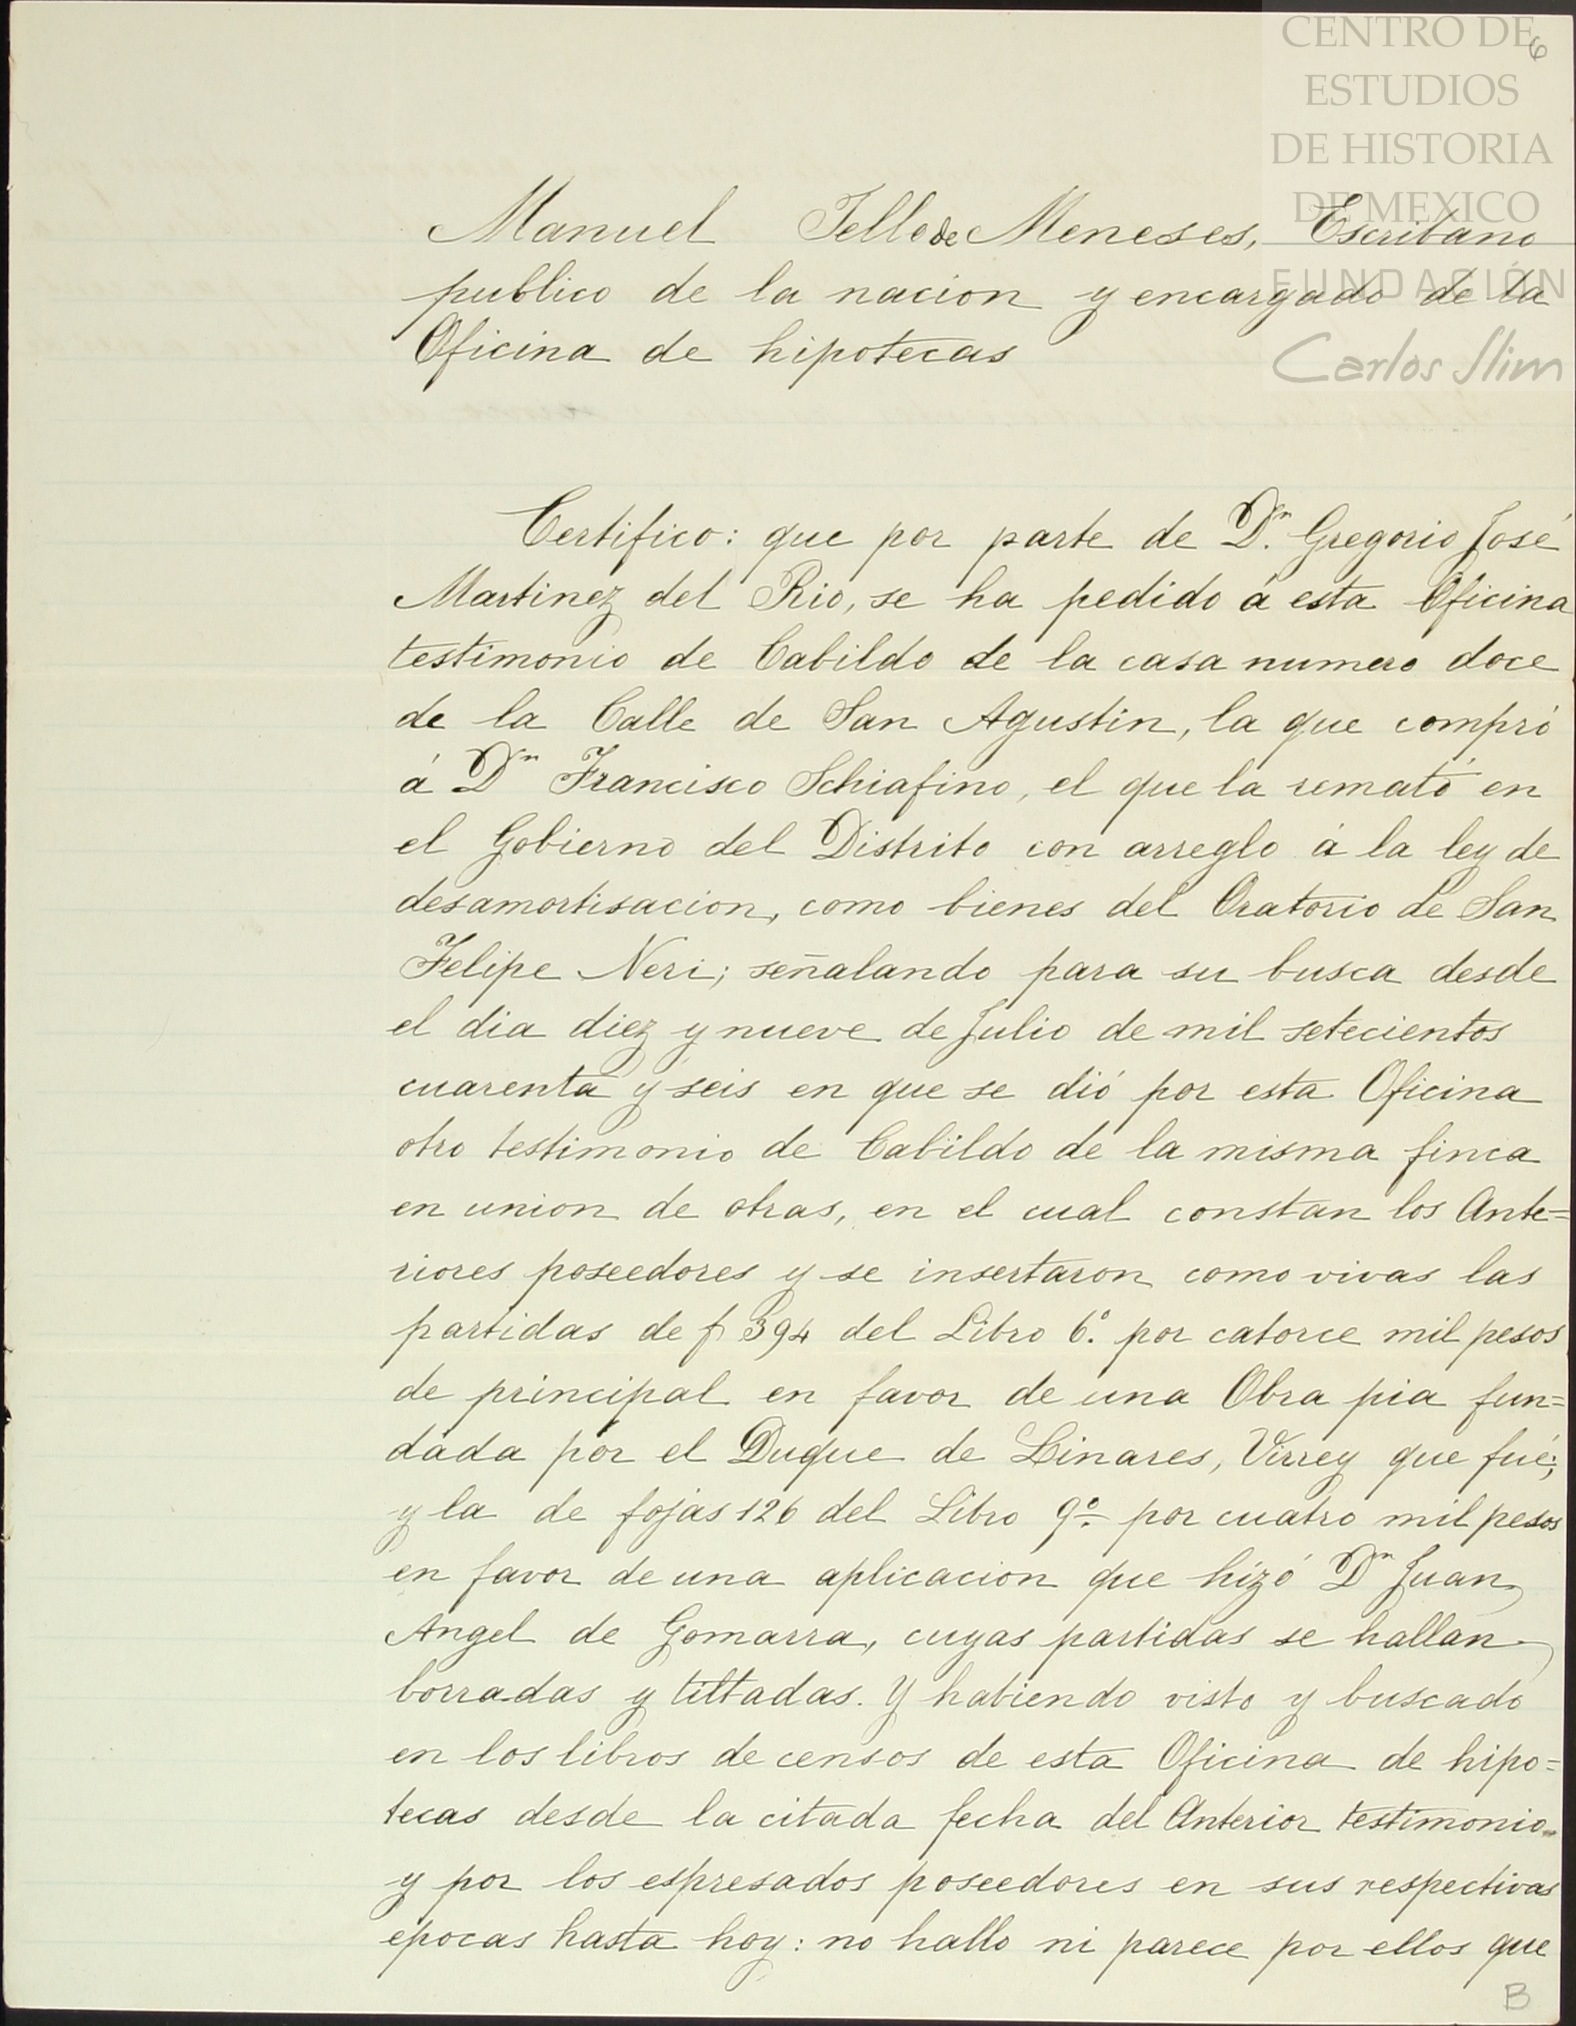 CENTRO DE
ESTUDIOS
DE HISTORIA
DE MEXICO
FUNDACIÓN
Carlos Slim
6
Manuel Tello de Meneses, Escribano
publico de la nacion y encargado de la
Oficina de hipotecas
Certifico: que por parte de Dn. Gregorio José
Martinez del Rio, se ha pedido á esta Oficina
testimonio de Cabildo de la casa numero doce
de la Calle de San Agustin, la que compró
á Dn Francisco Schiafino, el que la remató en
el Gobierno del Distrito con arreglo á la ley de
desamortisacion, como bienes del Oratorio de San
Felipe Neri; señalando para su busca desde
el dia diez y nueve de Julio de mil setecientos
cuarenta y seis en que se dió por esta Oficina
otro testimonio de Cabildo de la misma finca
en union de otras, en el cual constan los Ante=
riores poseedores y se insertaron como vivas las
partidas de f 394 del Libro 6º. por catorce mil pesos
de principal en favor de una Obra pia fun=
dada por el Duque de Linares, Virrey que fué;
y la de fojas 126 del Libro 9º por cuatro mil pesos
en favor de una aplicacion que hizó Dn Juan
Angel de Gomarra, cuyas partidas se hallan
borradas y tiltadas. Y habiendo visto y buscado
en los libros de censos de esta Oficina de hipo=
tecas desde la citada fecha del Anterior testimonio
y por los espresados poseedores en sus respectivas
epocas hasta hoy: no hallo ni parece por ellos que
B